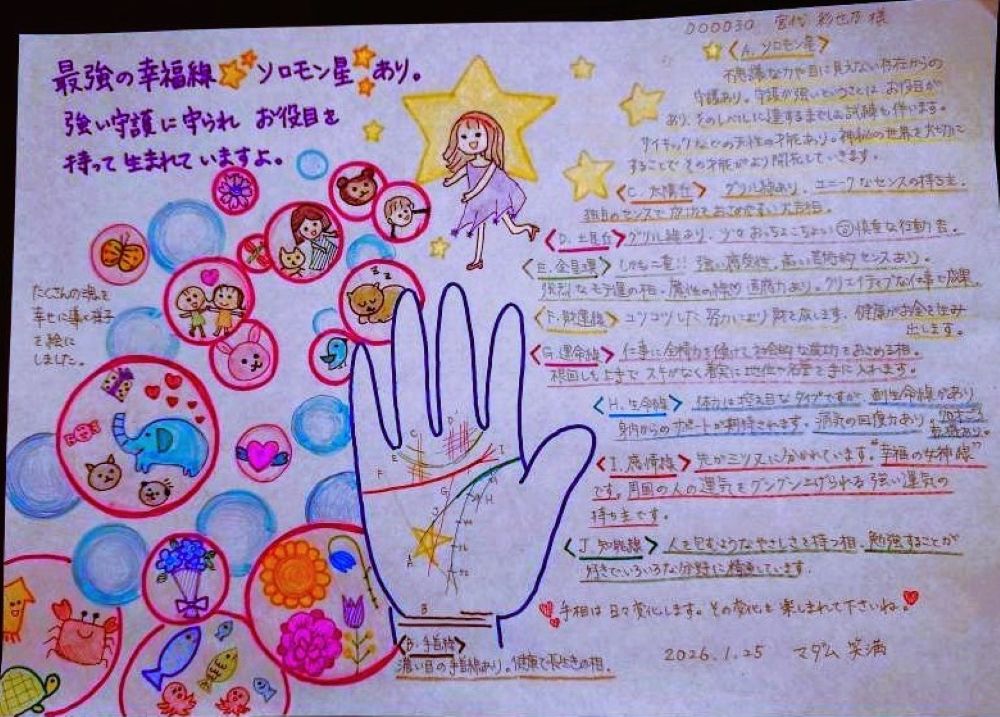 000030 宮代 彩也乃 様
最強の幸福線 ソロモン星 あり。
強い守護に守られ お役目を
持って生まれていますよ。
たくさんの魂を
幸せに導く様子
を絵に
しました。
〈A. ソロモン星〉
不思議な力や目に見えない存在からの
守護あり。守護が強いということは お役目が
あり、そのレベルに達するまでしむ試練も伴います。
サイキックなどの天性の才能あり。神秘の世界を大切に
することで その才能がより開花していきます。
〈C. 太陽丘〉 グリル線あり、ユニークなセンスの持ち主。
独自のセンスで成功をおさめやすい大吉相。
〈D. 土星丘〉グリル線あり、少々おっちょこちょい 慎重な行動 吉。
〈E. 金星環〉 しかも二重!! 強い感受性、高い芸術的センスあり。
強烈なモテ運の相。魔性の 魅力あり。クリエイティブな仕事で成果。
〈F. 財運線〉 コツコツした努力により 財を成します。健康がお金を生み
出します。
〈G. 運命線〉 仕事に全精力を傾けて 社会的な成功をおさめる相。
根回しも上手で スキがなく着実に地位や名誉を手に入れます。
〈H. 生命線〉 体力は控え目なタイプですが、副生命線があり
身内からのサポートが期待されます。病気の回復力あり。
〈I. 感情線〉 先が三ツ又に分かれています。"幸福の女神線"
です。周囲の人の運気をグングン上げられる 強い運気の
持ち主です。
〈J. 知能線〉 人を包むようなやさしさを持つ相。勉強することが
好きでいろいろな分野に精通しています。
手相は日々変化します。その変化を楽しまれて下さいね。
2026.1.25 マダム 笑満
〈B. 手首線〉
濃い目の手首線あり。健康で長生きの相。
C
D
E
F
I
G
H
J
A
B